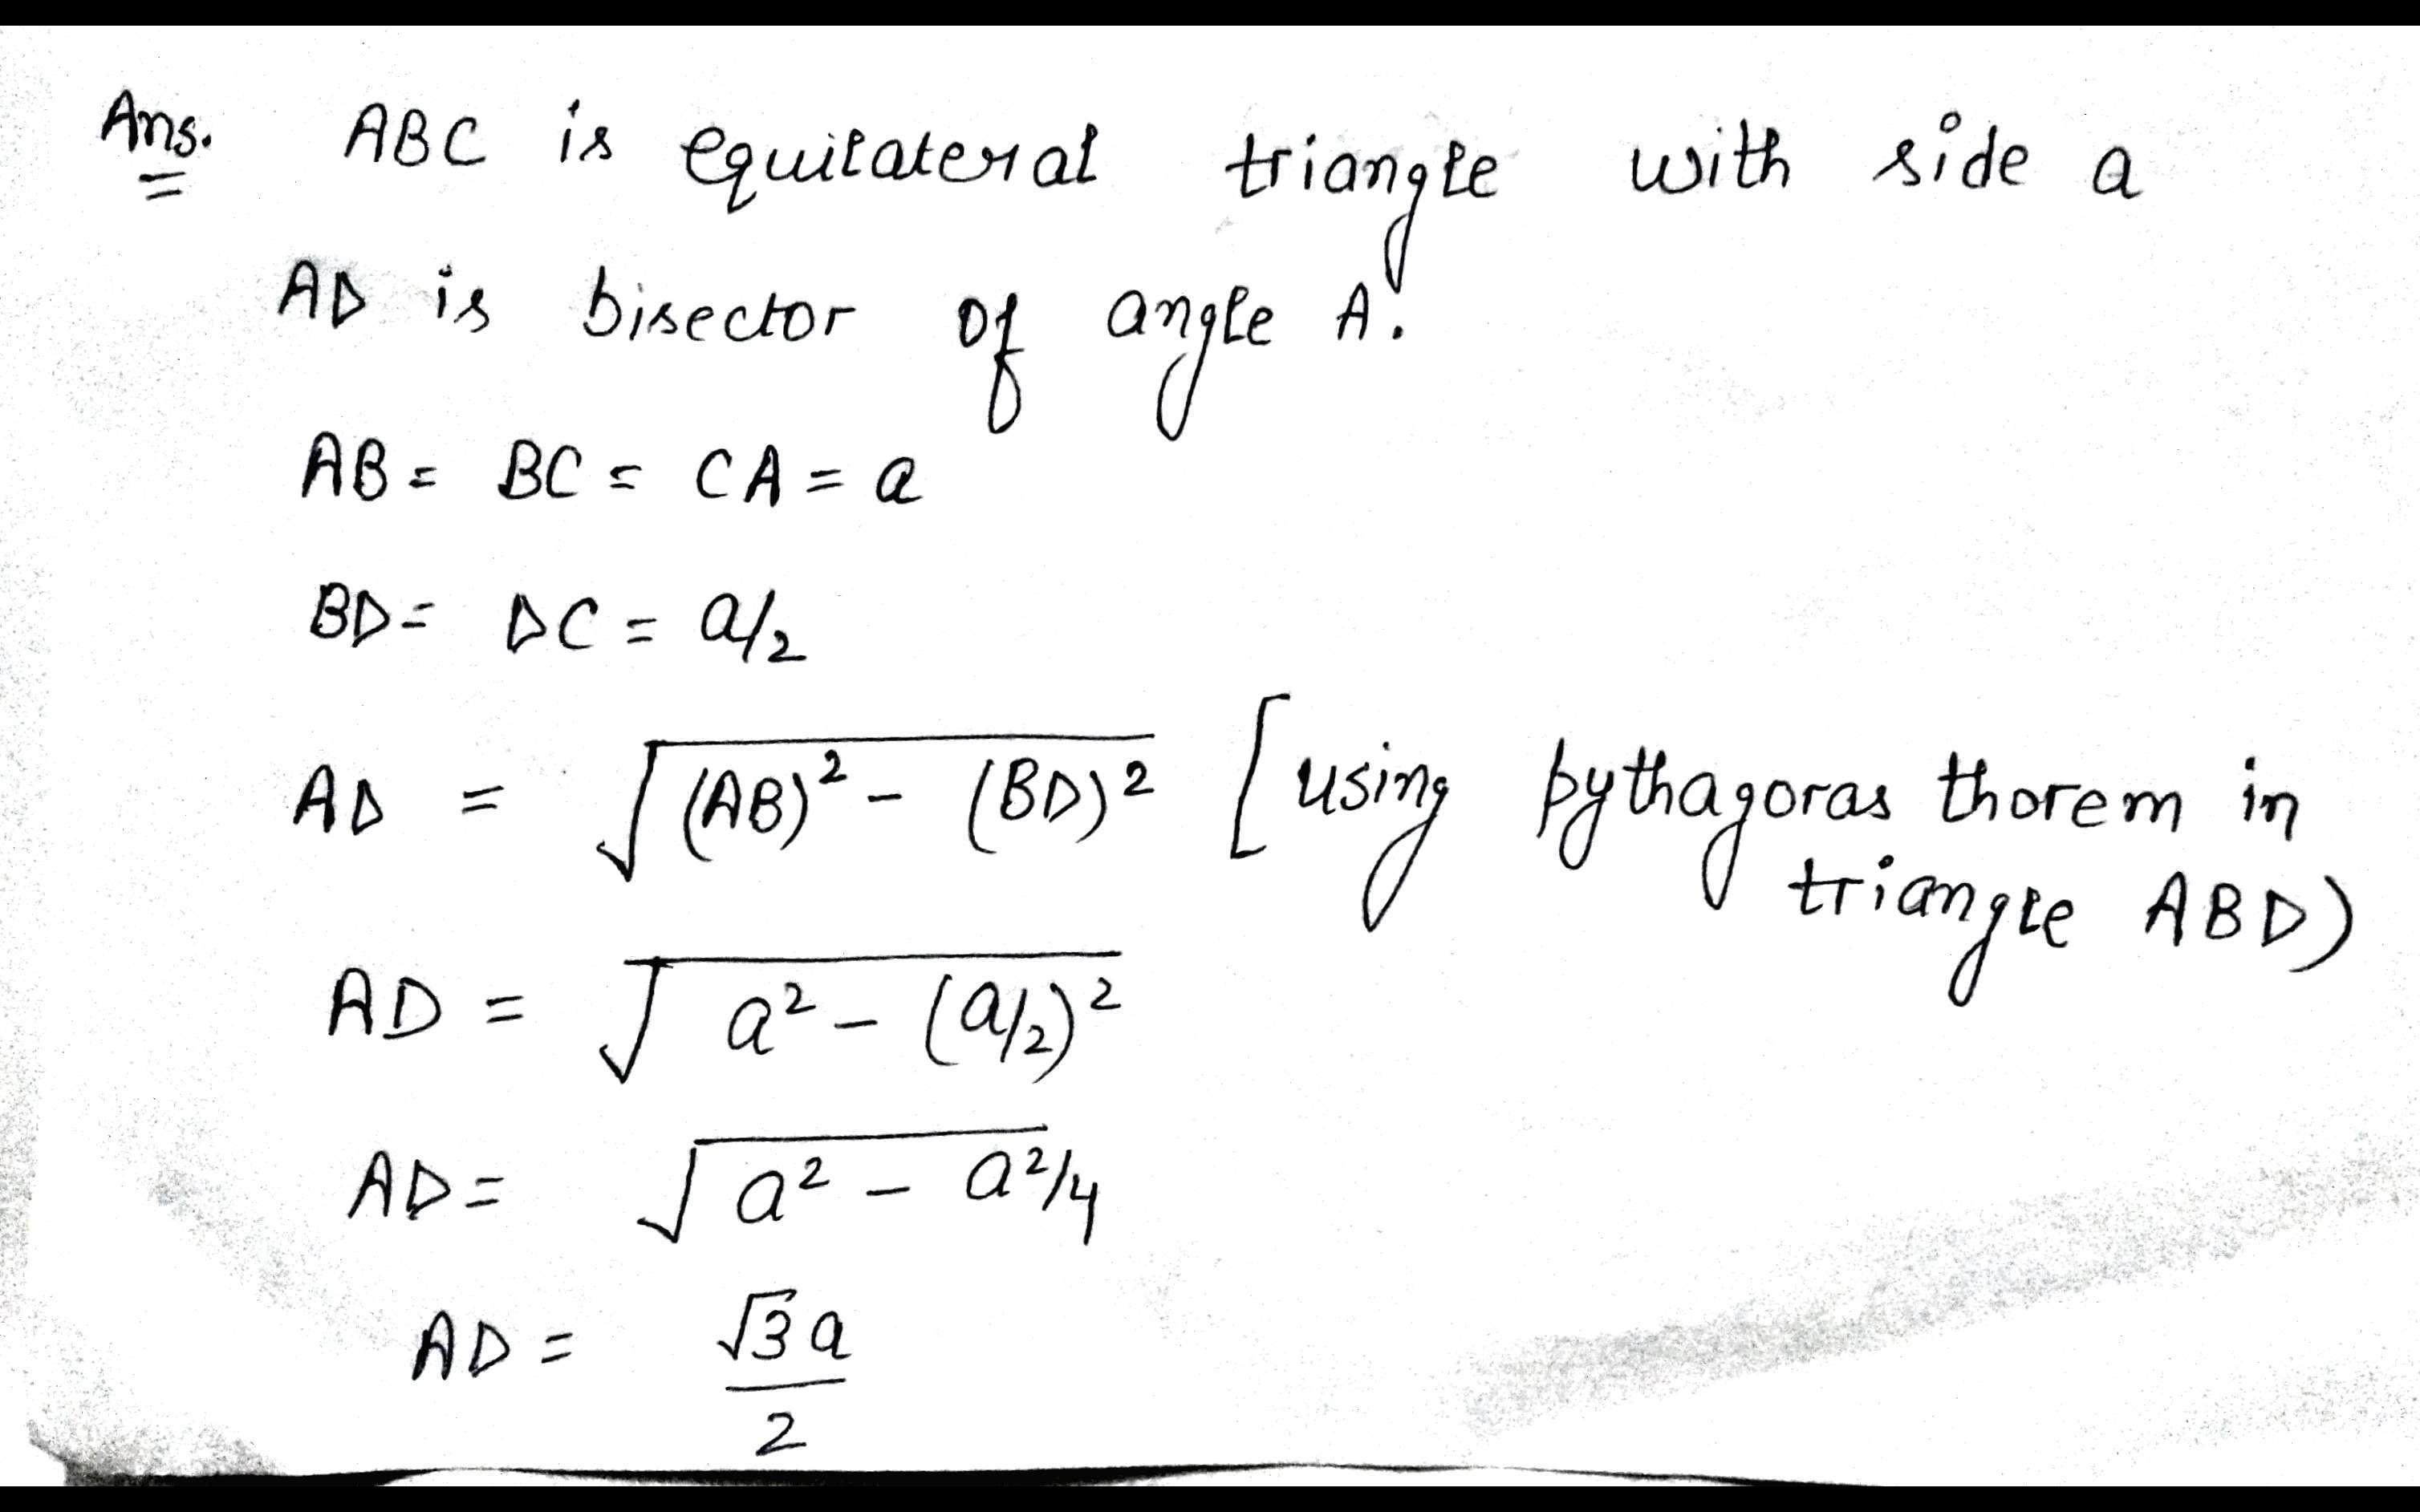 Ans. ABC is equilateral triangle with side a
AD is bisector of angle A.
AB = BC = CA = a
BD = DC = a/2
AD = √(AB)² - (BD)² [using pythagoras thorem in
triangle ABD)
AD = √a² - (a/2)²
AD = √a² - a²/4
AD = √3a
2